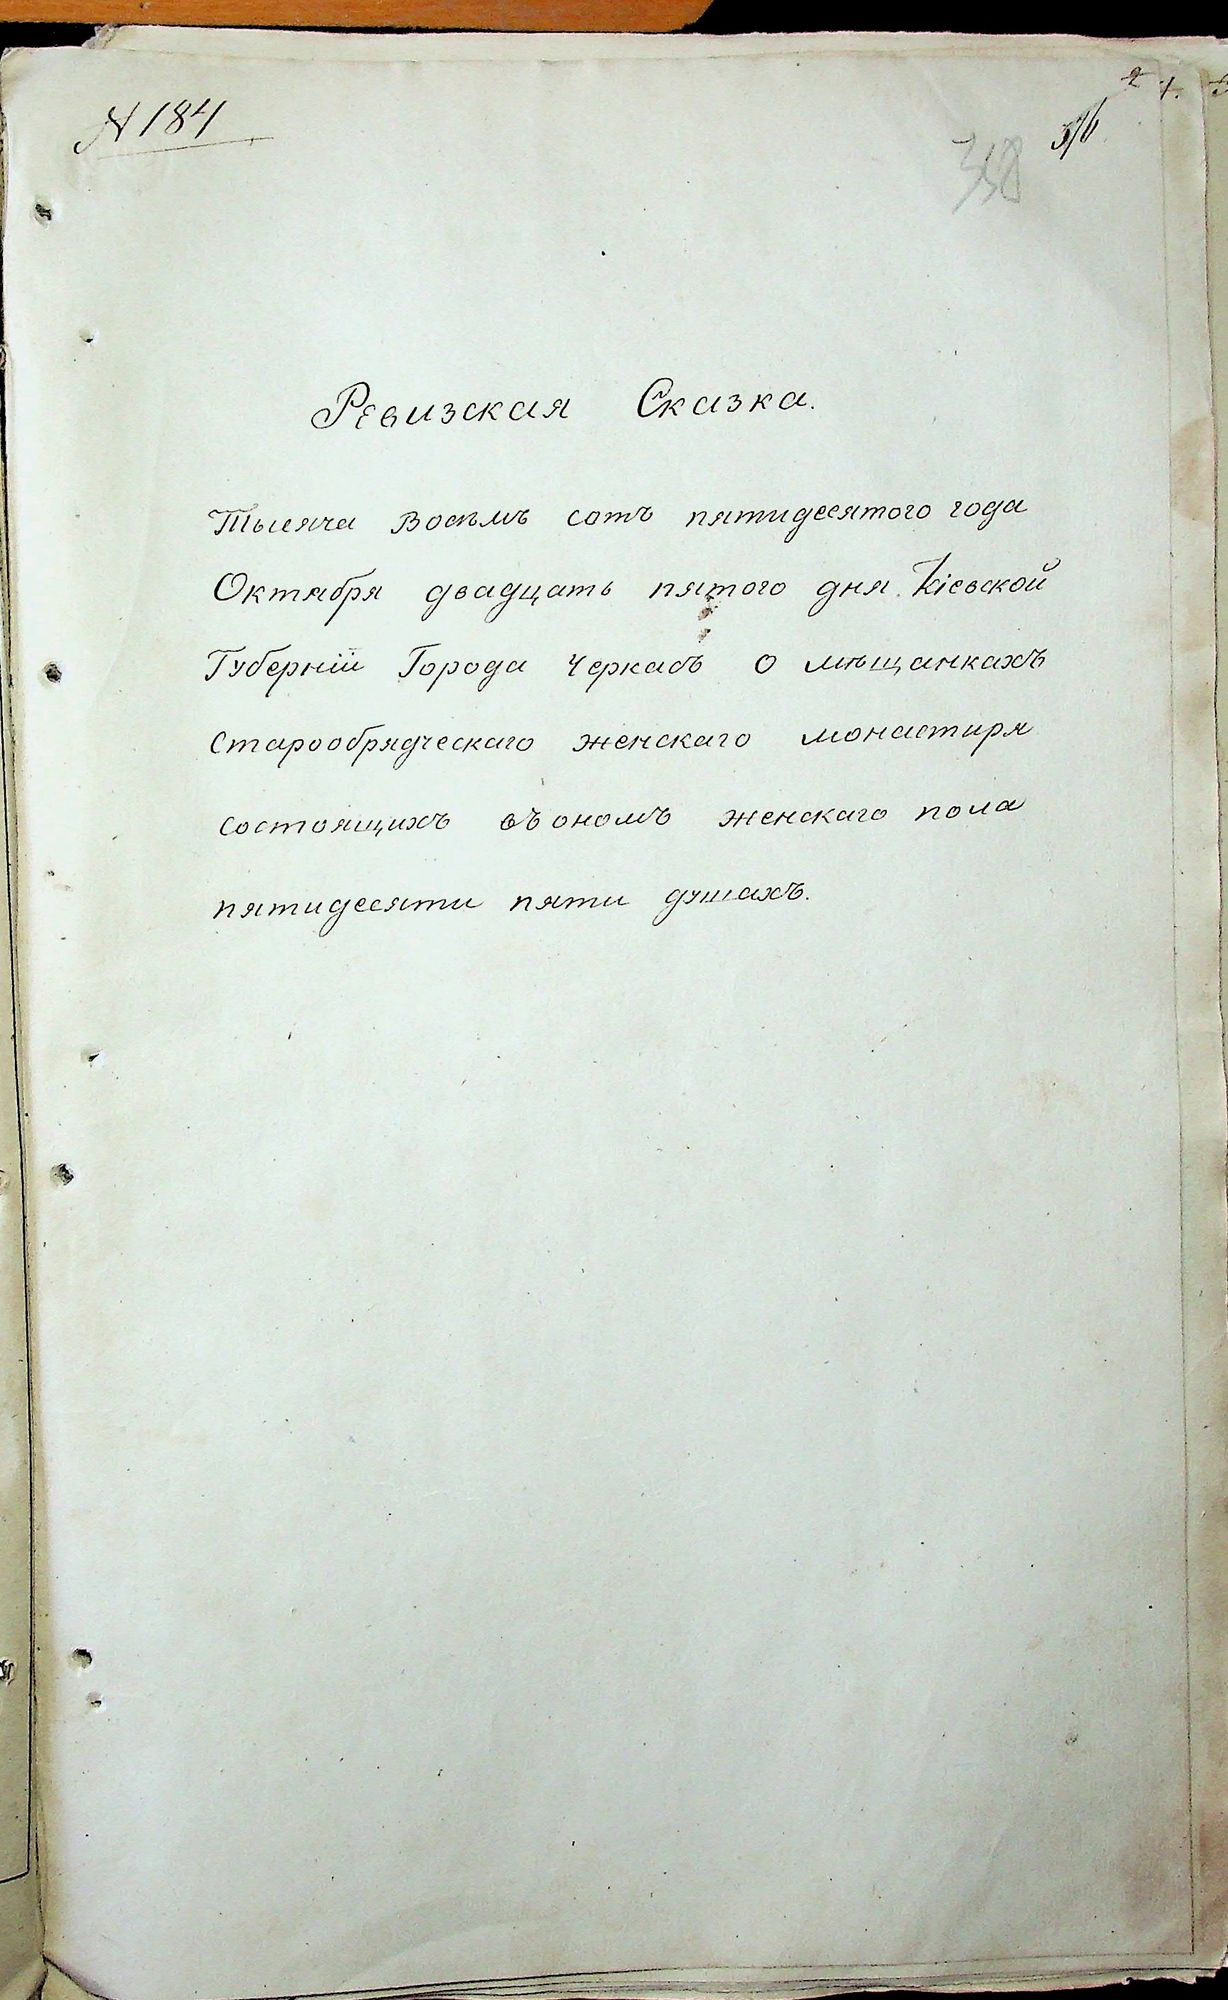 N 184
358
376
Ревизская Сказка.
Тысяча Восемъ сотъ пятидесятого года
Октября двадцать пятого дня Кіевской
Губерніи Города Черкасъ о мѣщанкахъ
Старообрядческаго женскаго монастиря
состоящихъ въ ономъ женскаго пола
пятидесяти пяти душахъ.